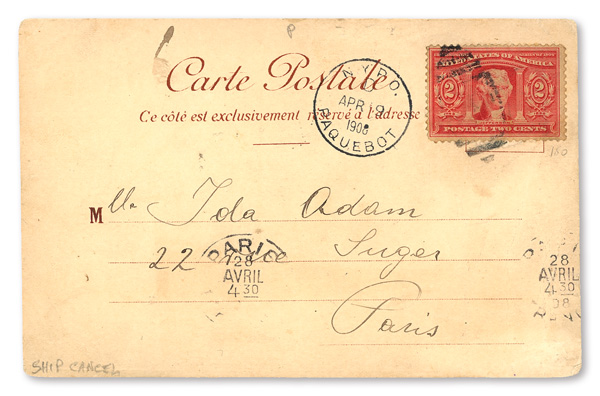 P
Carte Postale
Ce côté est exclusivement réservé à l'adresse
N.Y.P.O.
APR 9
1908
PAQUEBOT
UNITED STATES OF AMERICA
2 2
POSTAGE TWO CENTS
150
Mlle Ida Adam
22 rue Suger
Paris
PARIS
28
AVRIL
4 30
28
AVRIL
4 30
08
SHIP CANCEL